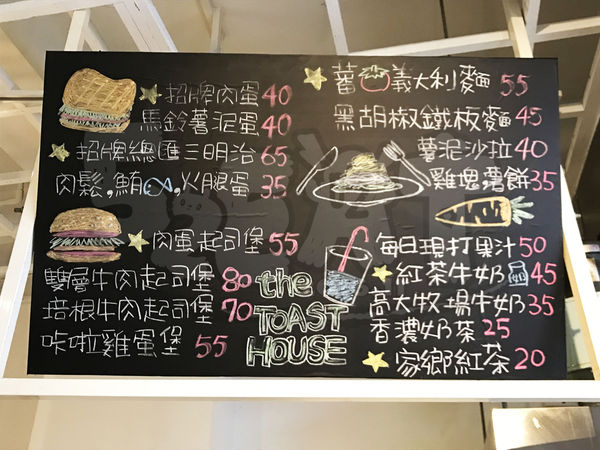 招牌肉蛋40
馬鈴薯泥蛋40
招牌總滙三明治65
肉鬆,鮪,火腿蛋35
肉蛋起司堡55
雙層牛肉起司堡80
培根牛肉起司堡70
咔啦雞蛋堡55
the
TOAST
HOUSE
蕃義大利麵55
黑胡椒鐵板麵45
薯泥沙拉40
雞塊.薯餅35
每日現打果汁50
紅茶牛奶45
高大牧場牛奶35
香濃奶茶25
家鄉紅茶20